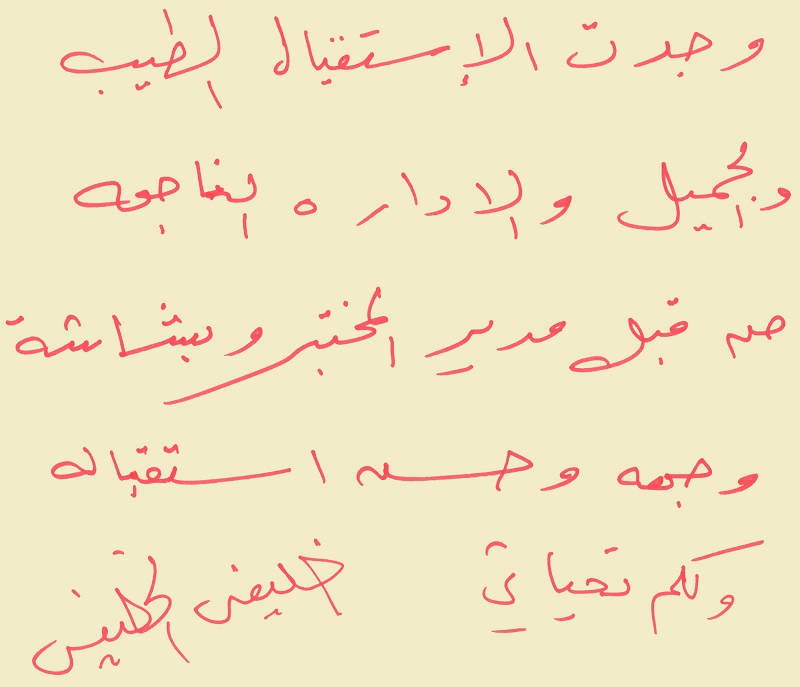 وجدت الإستقبال الطيب
والجميل والاداره الناجعه
من قبل مدير المختبر وبشاشة
وجهه وحسن استقباله
ولكم تحياتي خليفه الخليفي